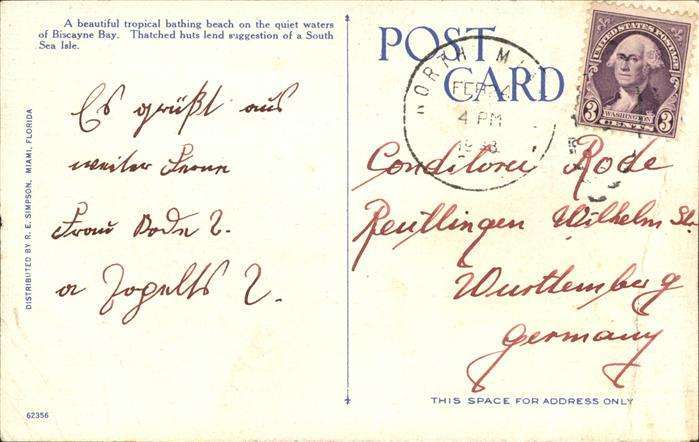 A beautiful tropical bathing beach on the quiet waters
of Biscayne Bay. Thatched huts lend suggestion of a South
Sea Isle.
Es grüßt aus
weiter Ferne
DISTRIBUTED BY R. E. SIMPSON, MIAMI, FLORIDA
62356
POST
CARD
NORTH
FEB
4 PM
UNITED STATES POSTAGE
3 WASHINGTON 3
CENTS
Conditorei Rode
Reutlingen Wilhelm St.
Wurttemberg
Germany
THIS SPACE FOR ADDRESS ONLY